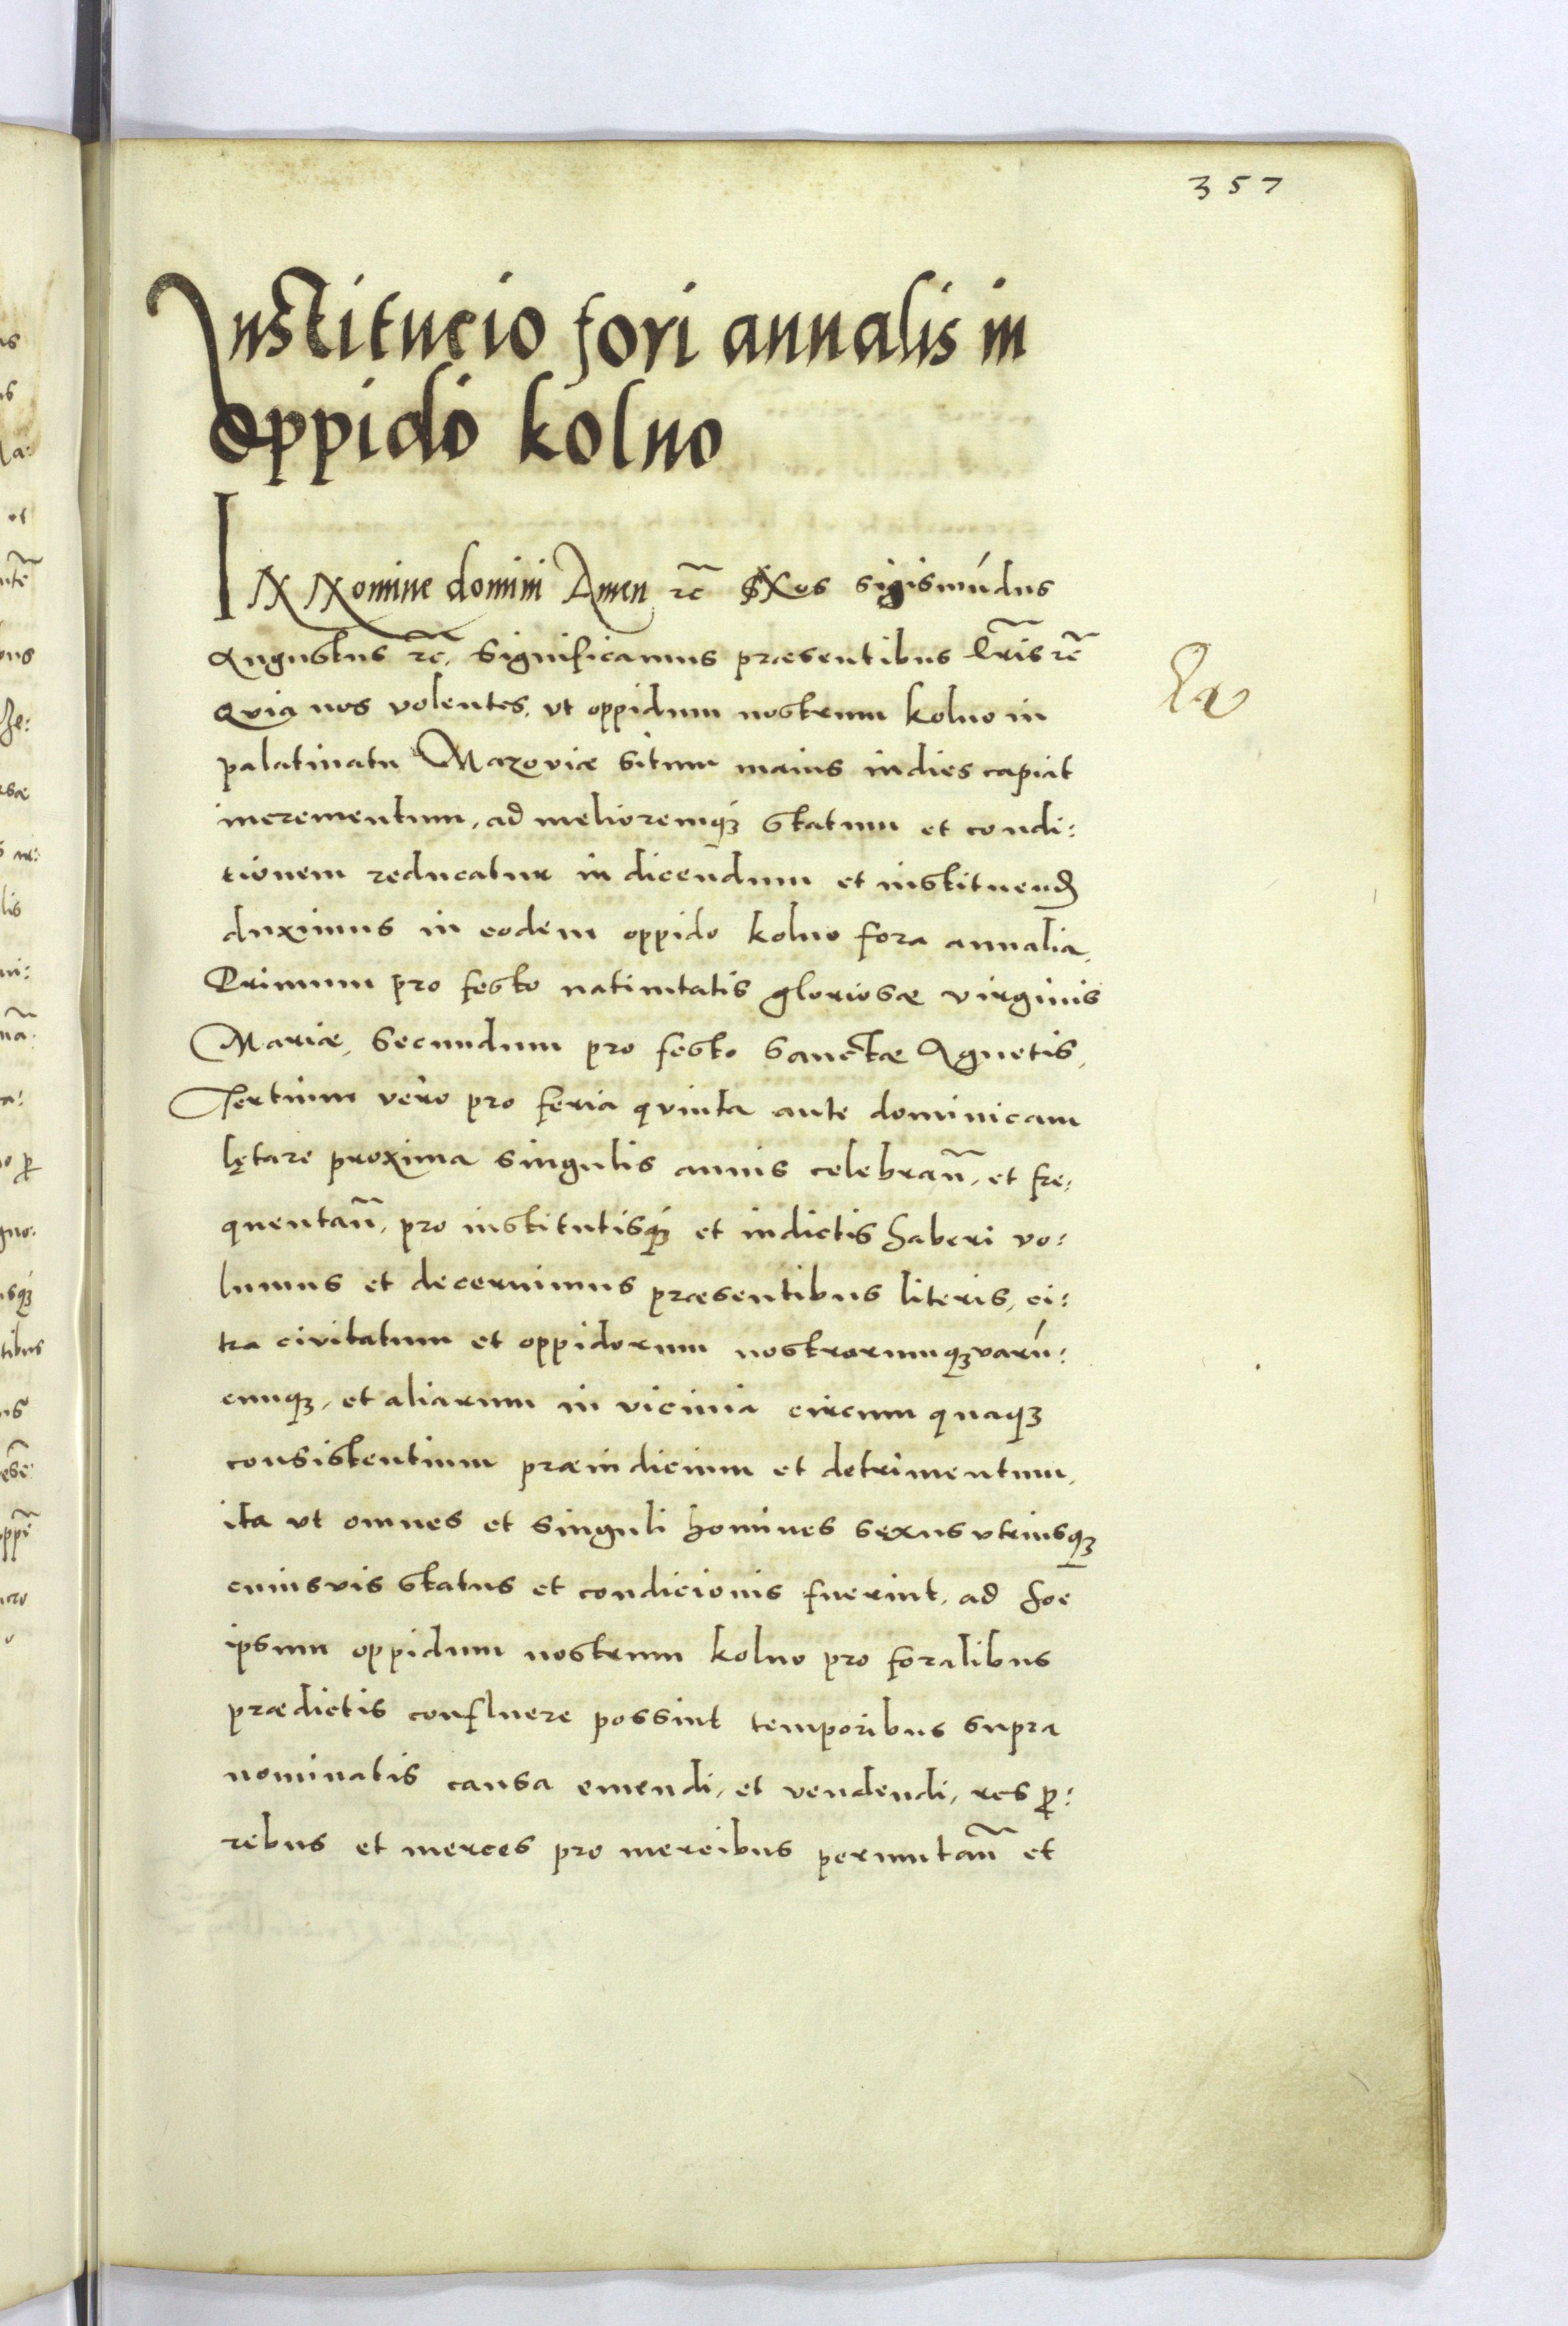 357
Institucio fori annalis in
oppido kolno
IN Nomine domini Amen rc̃ Nos sigismúdus
Augustus rc̃. Significamus præsentibus l̃ris rc̃
Quia nos volentes, vt oppidum nostrum kolno in
palatinatu Mazoviæ situm maius indies capiat
incrementum, ad melioremq́ꝫ statum et condi:
tionem reducatur in dicendum et instituend
duximus in eodem oppido kolno fora annalia,
Primum pro festo natiuitatis gloriosæ virginis
Mariæ, Secundum pro festo sanctæ Agnetis,
Tertium vero pro feria quinta ante dominicam
lętare proxima singulis annis celebrañ, et fre:
quentañ, pro institutisq́ꝫ et indictis haberi vo:
lumus et decernimus præsentibus literis, ci:
tra civitatum et oppidorum nostrorumqꝫ varú:
cumqꝫ, et aliarum in vicinia circum quaqꝫ
consistentium præiudicium et detrimentum,
ita vt omnes et singuli homines sexus vtriusqꝫ
cuiusvis status et condicionis fuerint, ad hoc
ipsum oppidum nostrum kolno pro foralibus
prædictis confluere possint temporibus supra
nominatis causa emendi, et vendendi, res ꝓ:
rebus et merces pro mercibus permutañ et